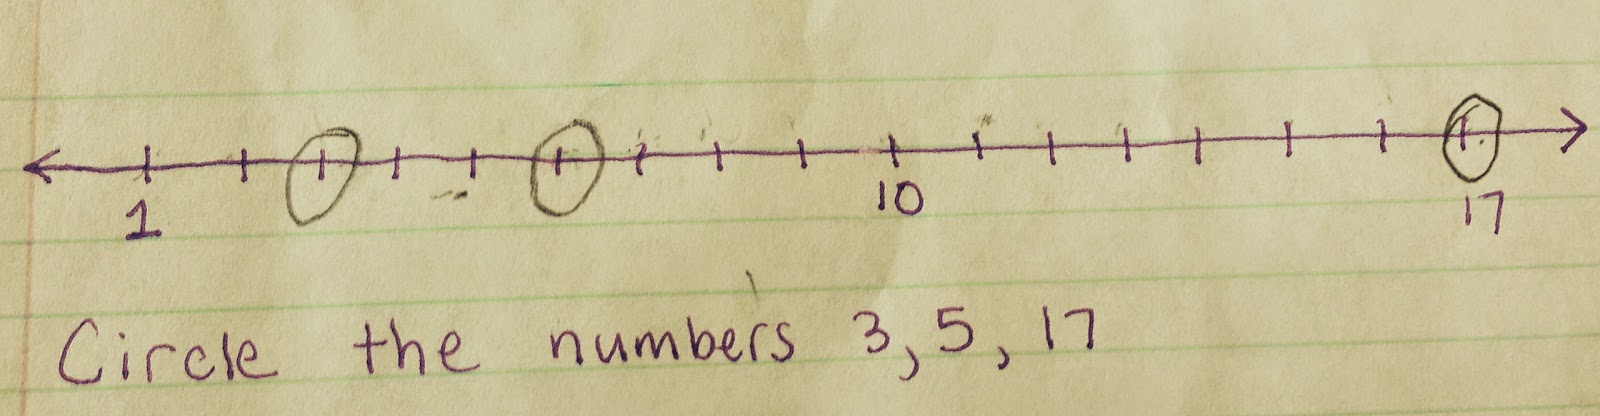 1 10 17
Circle the numbers 3, 5, 17